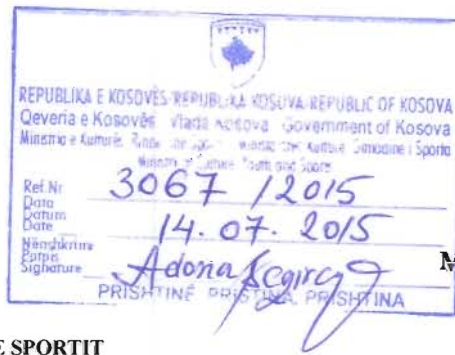 REPUBLIKA E KOSOVËS/REPUBLIKA KOSOVA/REPUBLIC OF KOSOVA
Qeveria e Kosovës Vlada Kosova Government of Kosova
Ministria e Kulturës Kulture Omladine i Sporta
Ministry of Culture Youth and Sports
Ref.Nr 3067 / 2015
Data
Datum
Date 14. 07. 2015
Nënshkrimi
Potpis
Signature Adona
PRISHTINË PRISTINA, PRISHTINA
M
E SPORTIT